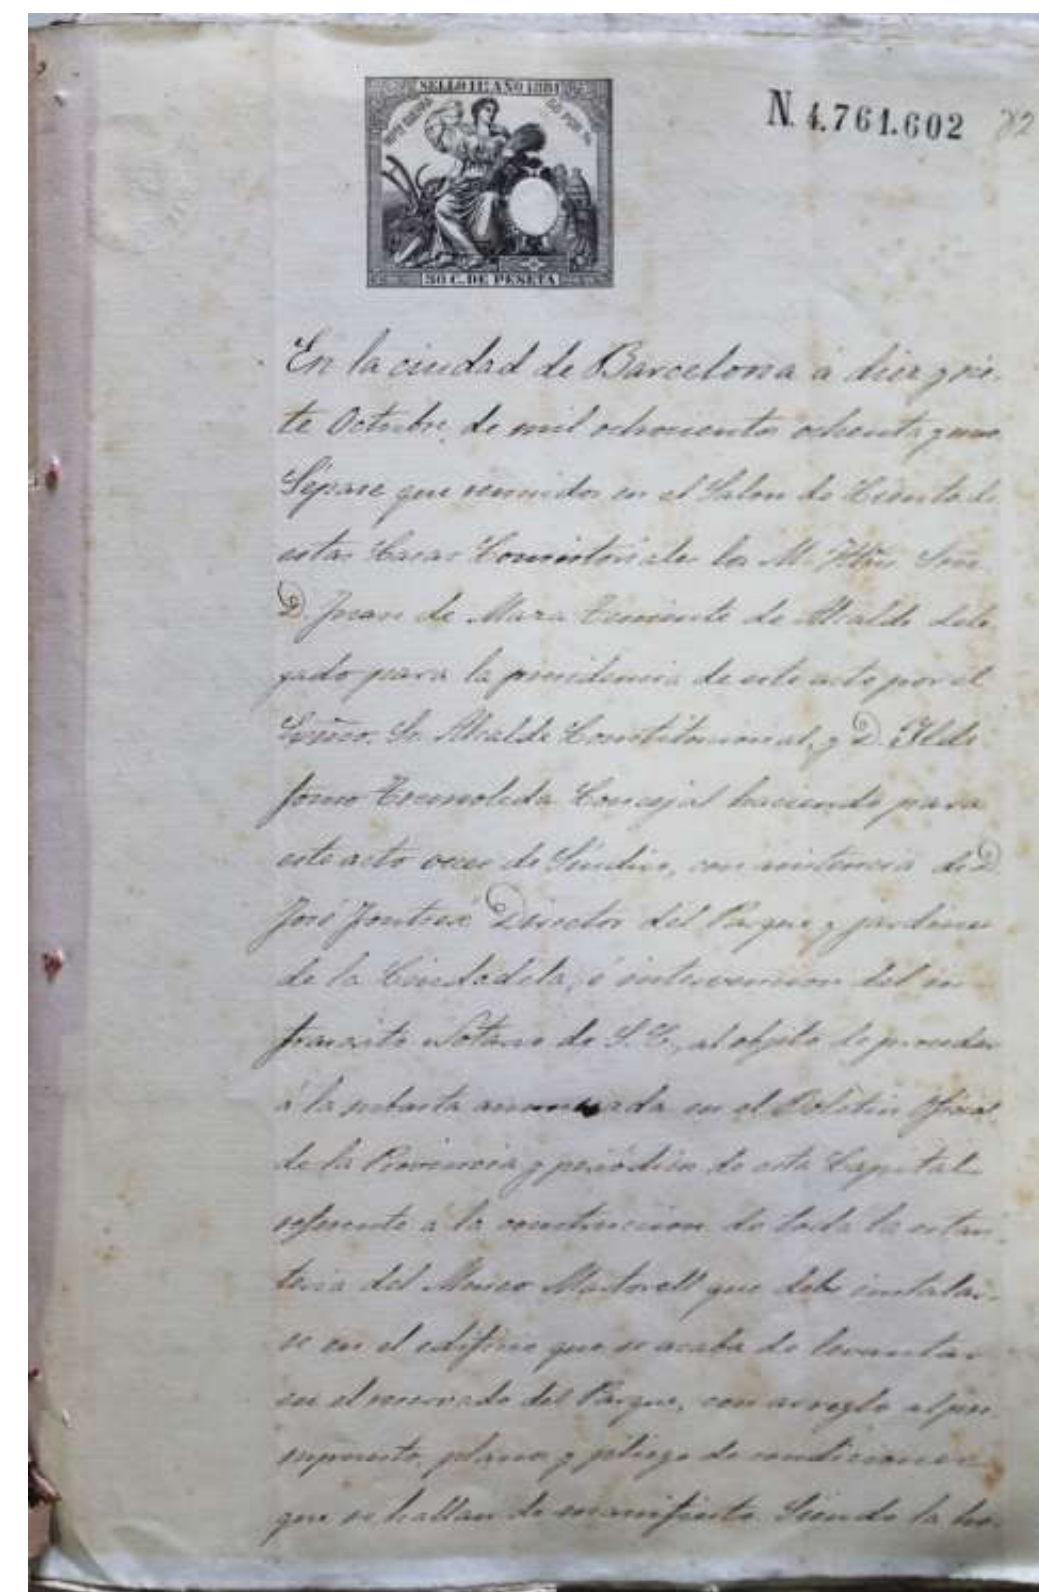 SELLO 11º AÑO 1881
N. 4.761.602
82
50 C. DE PESETA
En la ciudad de Barcelona á diez y sie-
te Octubre de mil ochocientos ochenta y uno
Sépase que reunidos en el Salon de Ciento de
estas Casas Consistoriales los M. Iltres Sres
D. Juan de Mara Teniente de Alcalde dele
gado para la presidencia de este acto por el
Excmo. Sr. Alcalde Constitucional, y D. Ilde
fonso Concejal haciendo para
este acto veces de Síndico, con asistencia de D.
José Fontseré Director del Parque y jardines
de la Ciudadela, é intervencion del in
frascrito Notario de S. E., al objeto de proceder
á la subasta anunciada en el Boletin Oficial
de la Provincia y periódicos de esta Capital
referente á la construccion de toda la estan
teria del Museo Martorell que debe instalar
se en el edificio que se acaba de levantar
en el reservado del Parque, con arreglo al pre
supuesto, plano y pliego de condiciones
que se hallan de manifiesto. Siendo la ho-